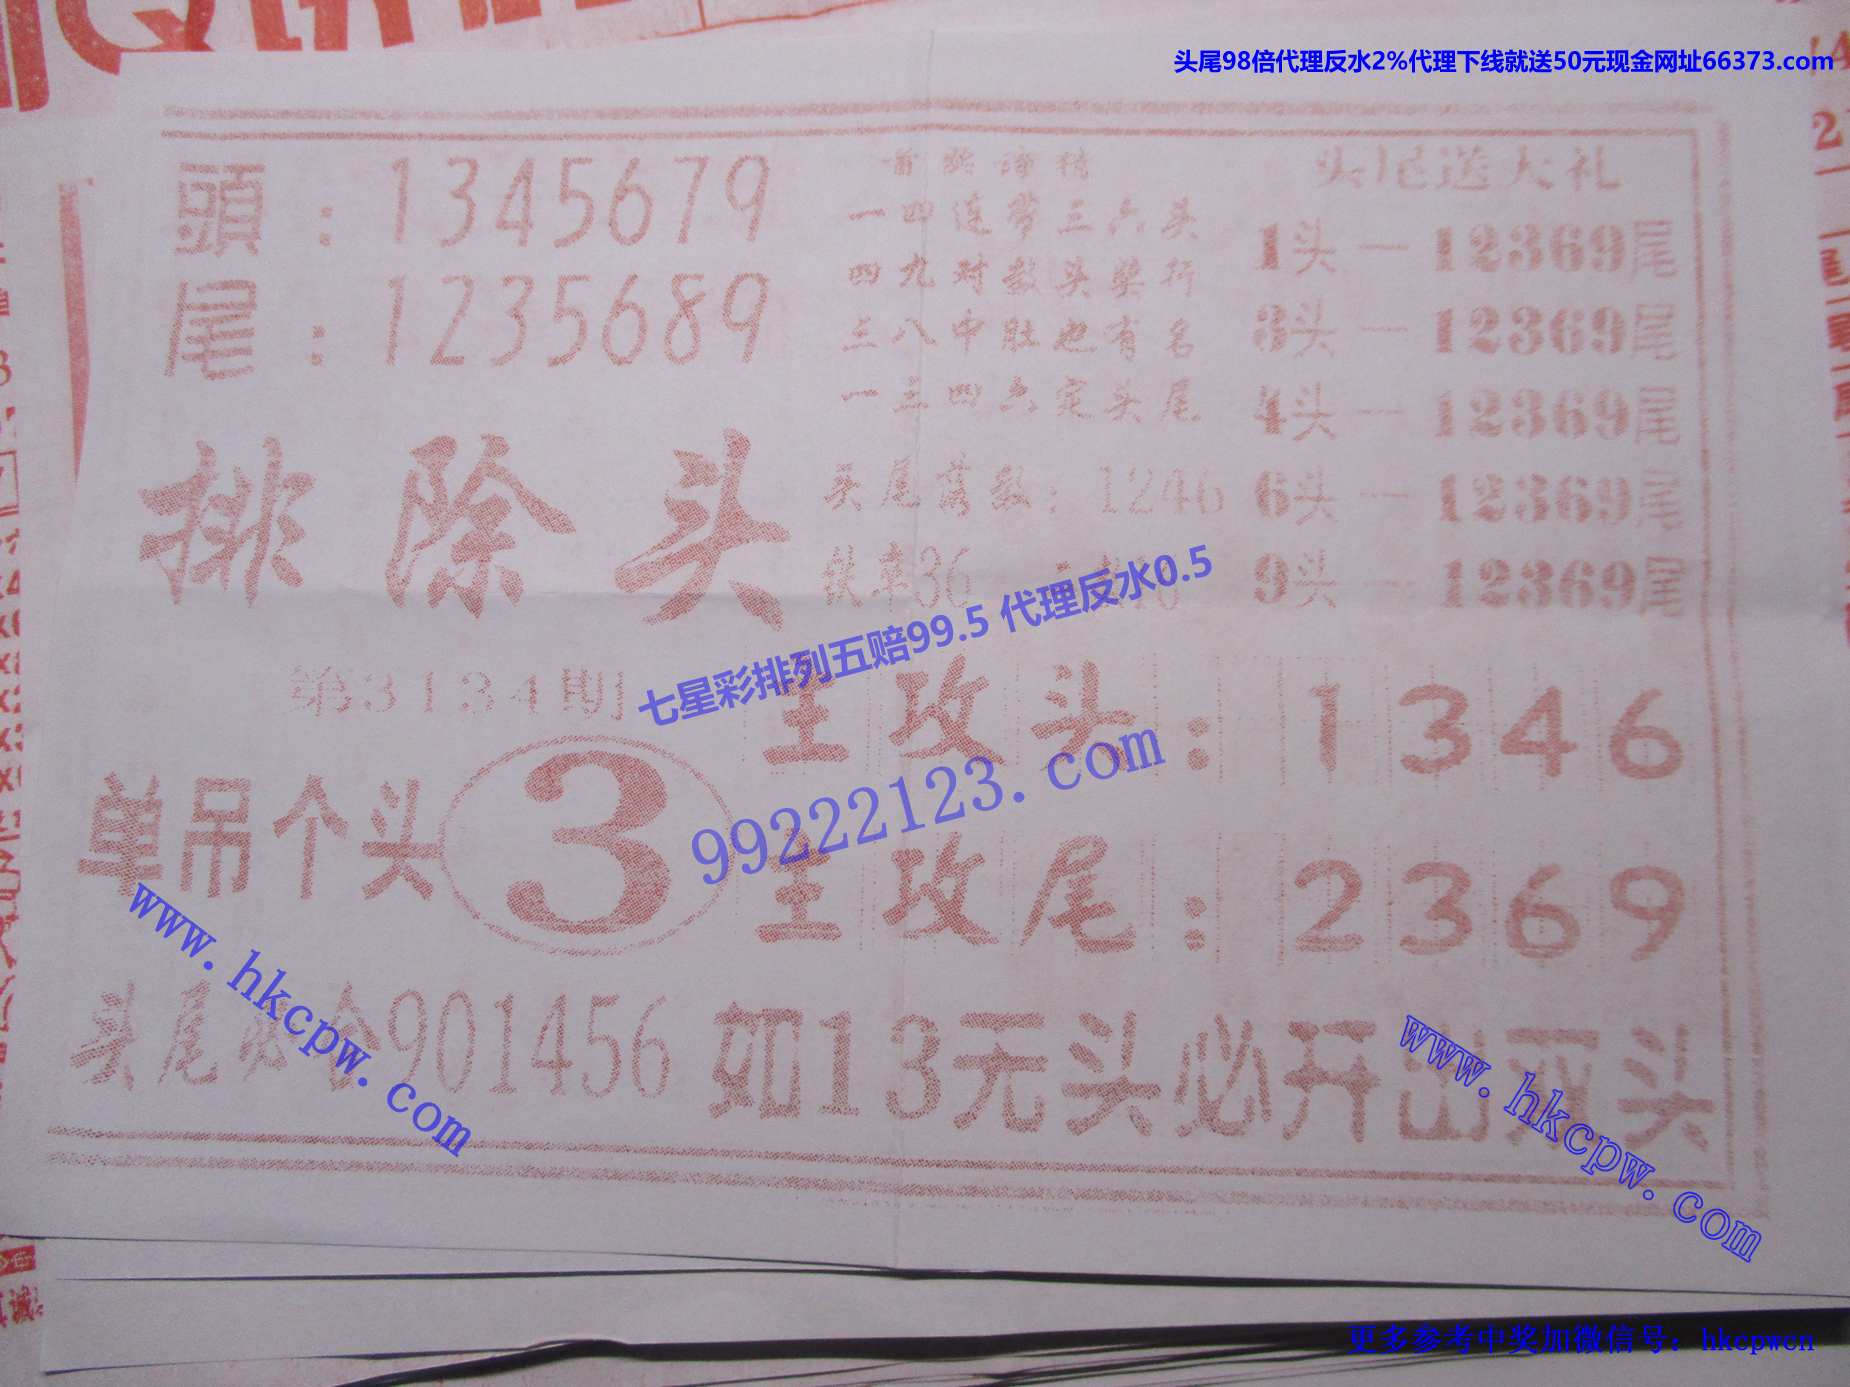 头尾98倍代理反水2%代理下线就送50元现金网址66373.com
頭：1345679
尾：1235689
排除头
第3134期
单吊个头 3
头尾必合901456
一四连带三六头
四九对数头奖行
三八中肚也有名
一三四六定头尾
头尾落数：1246
铁率36
头尾送大礼
1头—12369尾
3头—12369尾
4头—12369尾
6头—12369尾
9头—12369尾
主攻头：1346
主攻尾：2369
如13无头必开出双头
七星彩排列五赔99.5 代理反水0.5
99222123.com
www.hkcpw.com
www.hkcpw.com
更多参考中奖加微信号：hkcpwcn